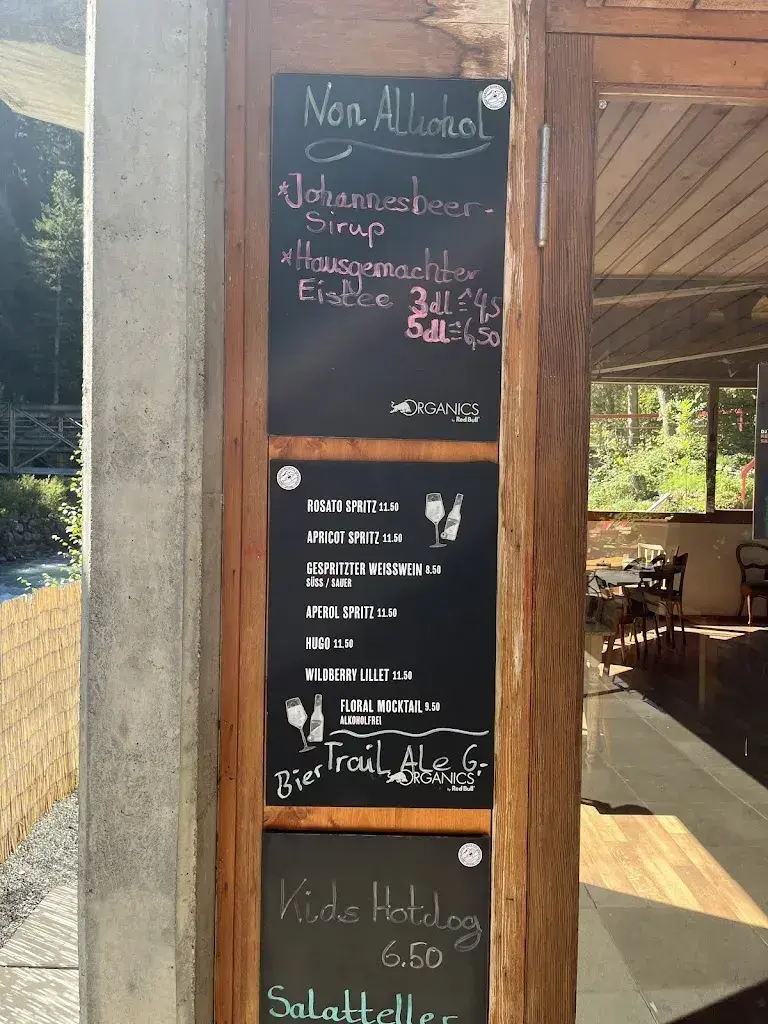 Non Alkohol
*Johannesbeer-
Sirup
*Hausgemachter
Eistee 3dl ≙ 4,5
5dl ≙ 6,50
ORGANICS
by Red Bull
ROSATO SPRITZ 11.50
APRICOT SPRITZ 11.50
GESPRITZTER WEISSWEIN 8.50
SÜSS / SAUER
APEROL SPRITZ 11.50
HUGO 11.50
WILDBERRY LILLET 11.50
FLORAL MOCKTAIL 9.50
ALKOHOLFREI
Bier Trail Ale 6.-
ORGANICS
by Red Bull
Kids Hotdog
6.50
Salatteller